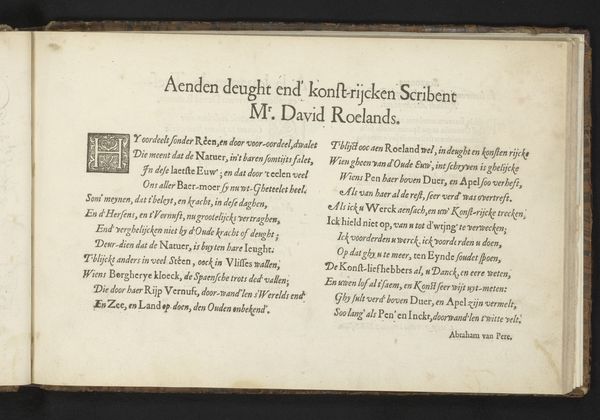 Aenden deught end' konſt-rijcken Scribent
Mr. David Roelands.
HY oordeelt ſonder Rêen, en door voor-oordeel, dwalet
Die meent dat de Natuer, in't baren ſomtijts falet,
In deſe laetſte Euw'; en dat door 'teelen veel
Ons aller Baer-moer ſy nu wt-Gheteelet heel.
Som' meynen, dat t'beleyt, en kracht, in deſe daghen,
En d'Herſens, en t'Vernuft, nu grootelijckx vertraghen,
End' verghelijcken niet by d'Oude kracht of deught;
Deur-dien dat de Natuer, is buyten hare Ieught.
T'blijckt anders in veel Steên, oock in Vliſſes wallen,
Wiens Borgherye kloeck, de Spaenſche trots ded' vallen;
Die door haer Rijp Vernuft, door-wand'len s'Werelds end'
En Zee, en Land op doen, den Ouden onbekend'.
T'blijct ooc aen Roeland wel, in deught en konſten rijcke
Wien gheen van d'Oude Euw', int ſchryven is ghelijcke
Wiens Pen haer boven Duer, en Apel ſoo verheft,
Als van haer al de reſt, ſeer verd' was overtreft.
Als ick u Werck aenſach, en uw' Konſt-rijcke trecken,
Ick hield niet op, van u tot d'wtjng' te verwecken;
Ick voorderden u werck, ick voorderden u doen,
Op dat ghy u te meer, ten Eynde ſoudet ſpoen,
De Konſt-liefhebbers al, u Danck, en eere weten,
En uwen lof al t'ſaem, en Konſt ſeer wijt uyt-meten:
Ghy ſult verd' boven Duer, en Apel zijn vermelt,
Soo lang' als Pen' en Inckt, doorwand'len t'witte velt.
Abraham van Pere.